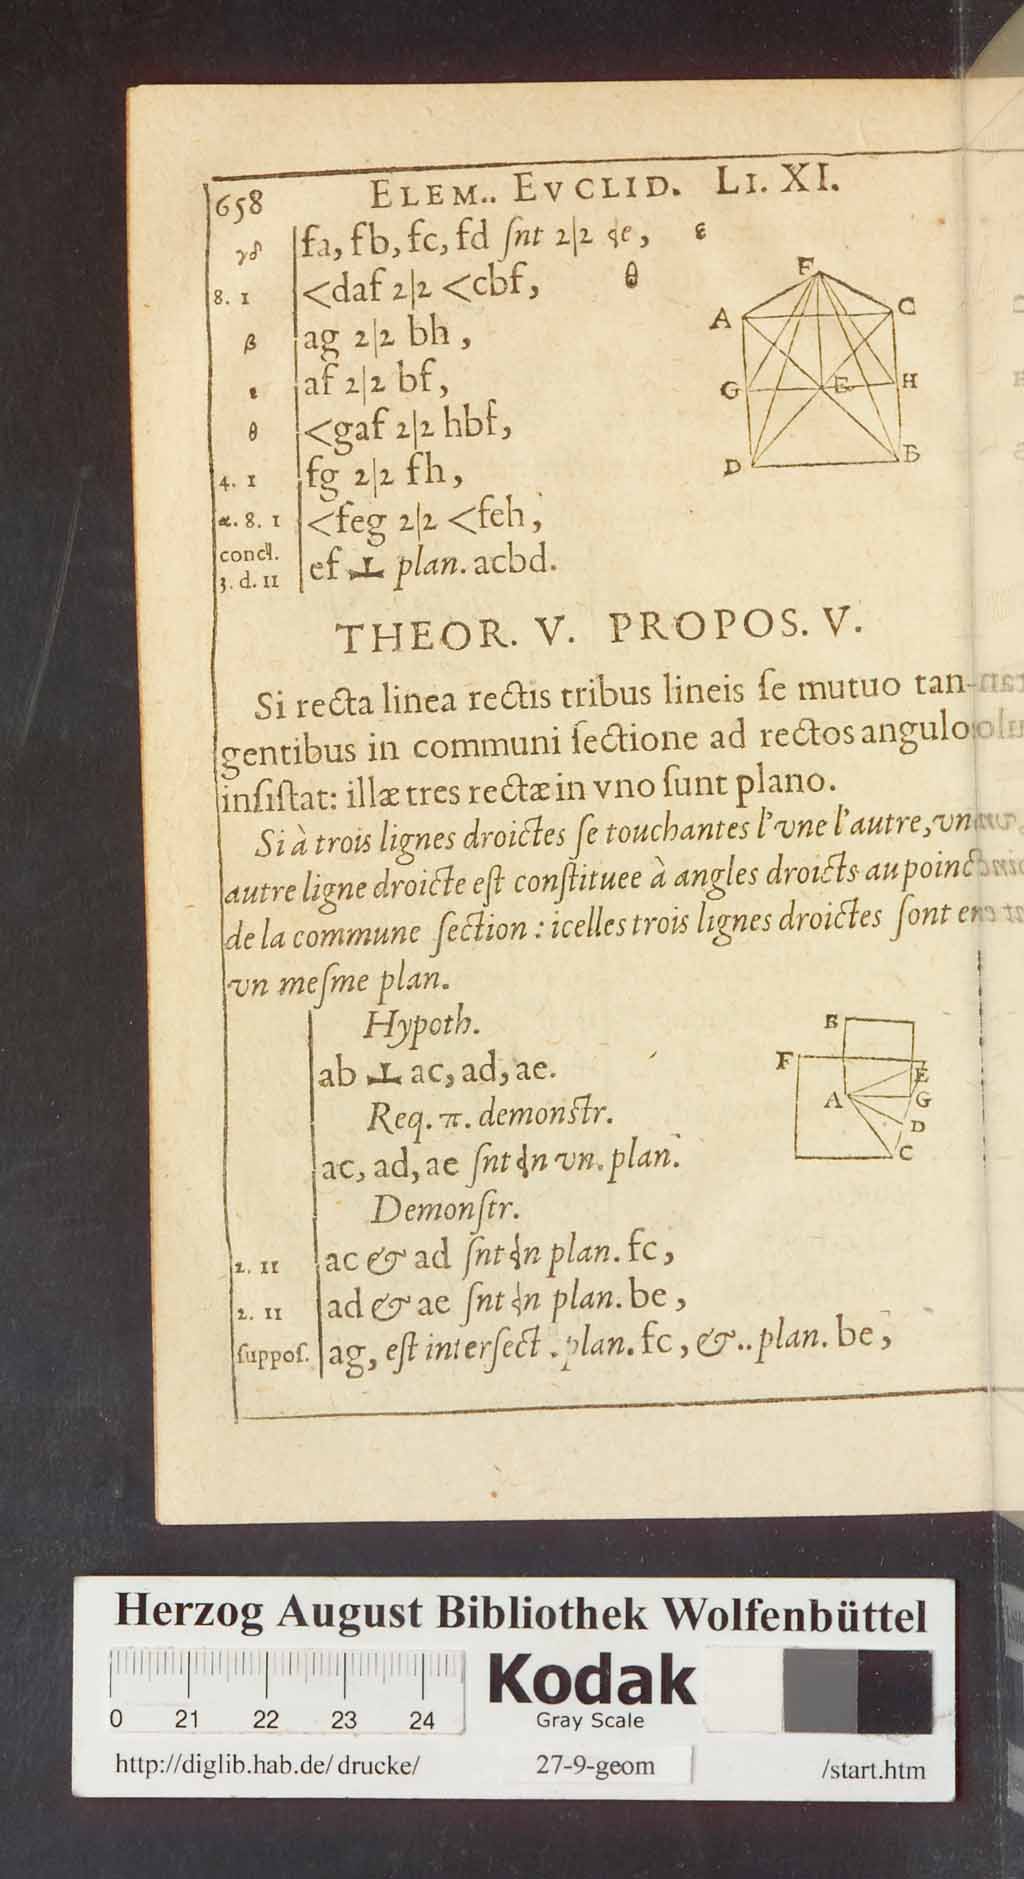 658 ELEM.. EVCLID. LI. XI.
γδ fa, fb, fc, fd ſnt 2|2 de, ε
8. 1 <daf 2|2 <cbf, θ
β ag 2|2 bh,
ε af 2|2 bf,
θ <gaf 2|2 hbf,
4. 1 fg 2|2 fh,
α. 8. 1 <feg 2|2 <feh,
concl.
3. d. 11 ef ⊥ plan. acbd.
F
A C
G E H
D B
THEOR. V. PROPOS. V.
Si recta linea rectis tribus lineis ſe mutuo tan-
gentibus in communi ſectione ad rectos angulo
inſiſtat: illæ tres rectæ in vno ſunt plano.
Si à trois lignes droictes ſe touchantes l'vne l'autre, vn
autre ligne droicte eſt conſtituee à angles droicts au poinct
de la commune ſection : icelles trois lignes droictes ſont en
vn meſme plan.
Hypoth.
ab ⊥ ac, ad, ae.
Req. π. demonſtr.
ac, ad, ae ſnt in vn. plan.
Demonſtr.
B
F
E
A G
D
C
2. 11 ac & ad ſnt in plan. fc,
2. 11 ad & ae ſnt in plan. be,
ſuppoſ. ag, eſt interſect. plan. fc, &.. plan. be,
Herzog August Bibliothek Wolfenbüttel
0 21 22 23 24
Kodak
Gray Scale
http://diglib.hab.de/drucke/ 27-9-geom /start.htm